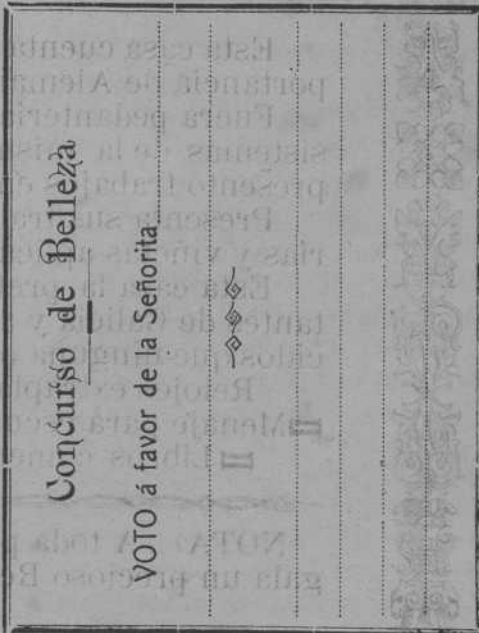 Concurso de Belleza
VOTO á favor de la Señorita